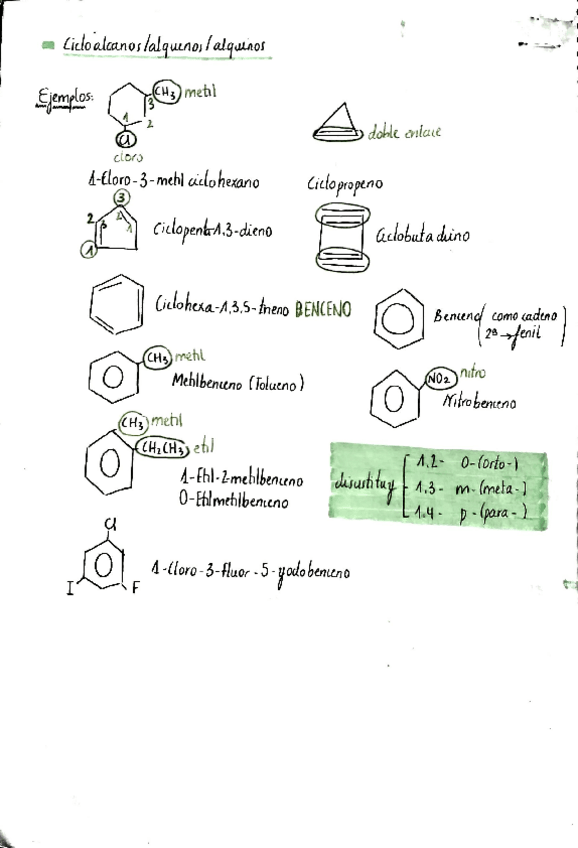 Cicloalcanos/alquenos/alquinos
Ejemplos:
CH3 metil
3
1
2
Cl
cloro
doble enlace
1-Cloro-3-metil ciclohexano
Ciclopropeno
3
2
3
1
Ciclopenta-1,3-dieno
Ciclobutadiino
Ciclohexa-1,3,5-trieno BENCENO
Benceno ( como cadena )
2ª → fenil
CH3 metil
Metilbenceno (Tolueno)
NO2 nitro
Nitrobenceno
CH3 metil
CH2CH3 etil
1-Etil-2-metilbenceno
O-Etilmetilbenceno
disustituy
1,2- O-(orto-)
1,3- m-(meta-)
1,4- p-(para-)
Cl
I
F
1-Cloro-3-fluor-5-yodobenceno